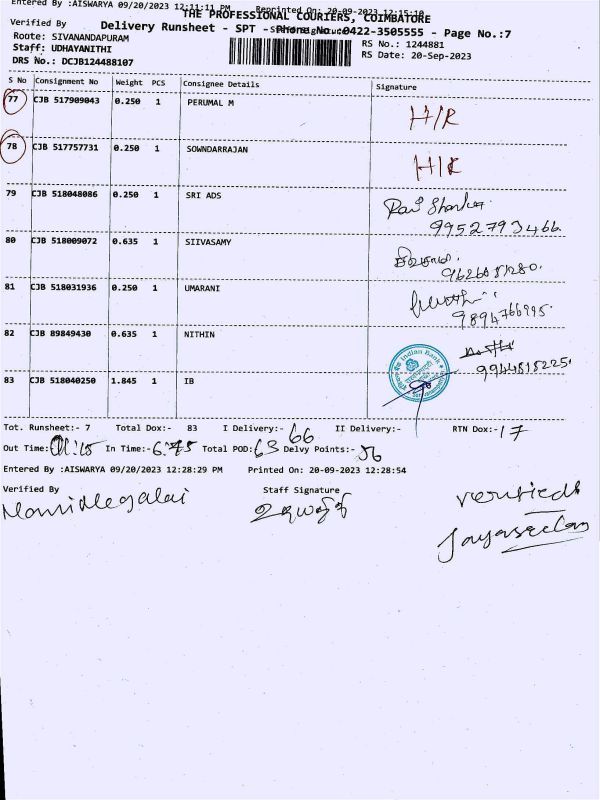 Entered By :AISWARYA 09/20/2023 12:11:11 PM Reprinted On: 20-09-2023 12:15:10
THE PROFESSIONAL COURIERS, COIMBATORE
Verified By
Delivery Runsheet - SPT - Phone No.:0422-3505555 - Page No.:7
Staff Signature
Route: SIVANANDAPURAM
RS No.: 1244881
Staff: UDHAYANITHI
RS Date: 20-Sep-2023
DRS No.: DCJB124488107
S No Consignment No Weight PCS Consignee Details Signature
77 CJB 517909043 0.250 1 PERUMAL M H/R
78 CJB 517757731 0.250 1 SOWNDARRAJAN H/R
79 CJB 518048086 0.250 1 SRI ADS Ravi Shankar
9952793466
80 CJB 518009072 0.635 1 SIIVASAMY
81 CJB 518031936 0.250 1 UMARANI
9894766995
82 CJB 89849430 0.635 1 NITHIN
9944815225
Indian Bank
83 CJB 518040250 1.845 1 IB
Tot. Runsheet:- 7 Total Dox:- 83 I Delivery:- 66 II Delivery:- RTN Dox:- 17
Out Time: In Time:- 6:45 Total POD: 63 Delvy Points:- 56
Entered By :AISWARYA 09/20/2023 12:28:29 PM Printed On: 20-09-2023 12:28:54
Verified By Staff Signature
உதயநிதி
Verified
Jayaseelan